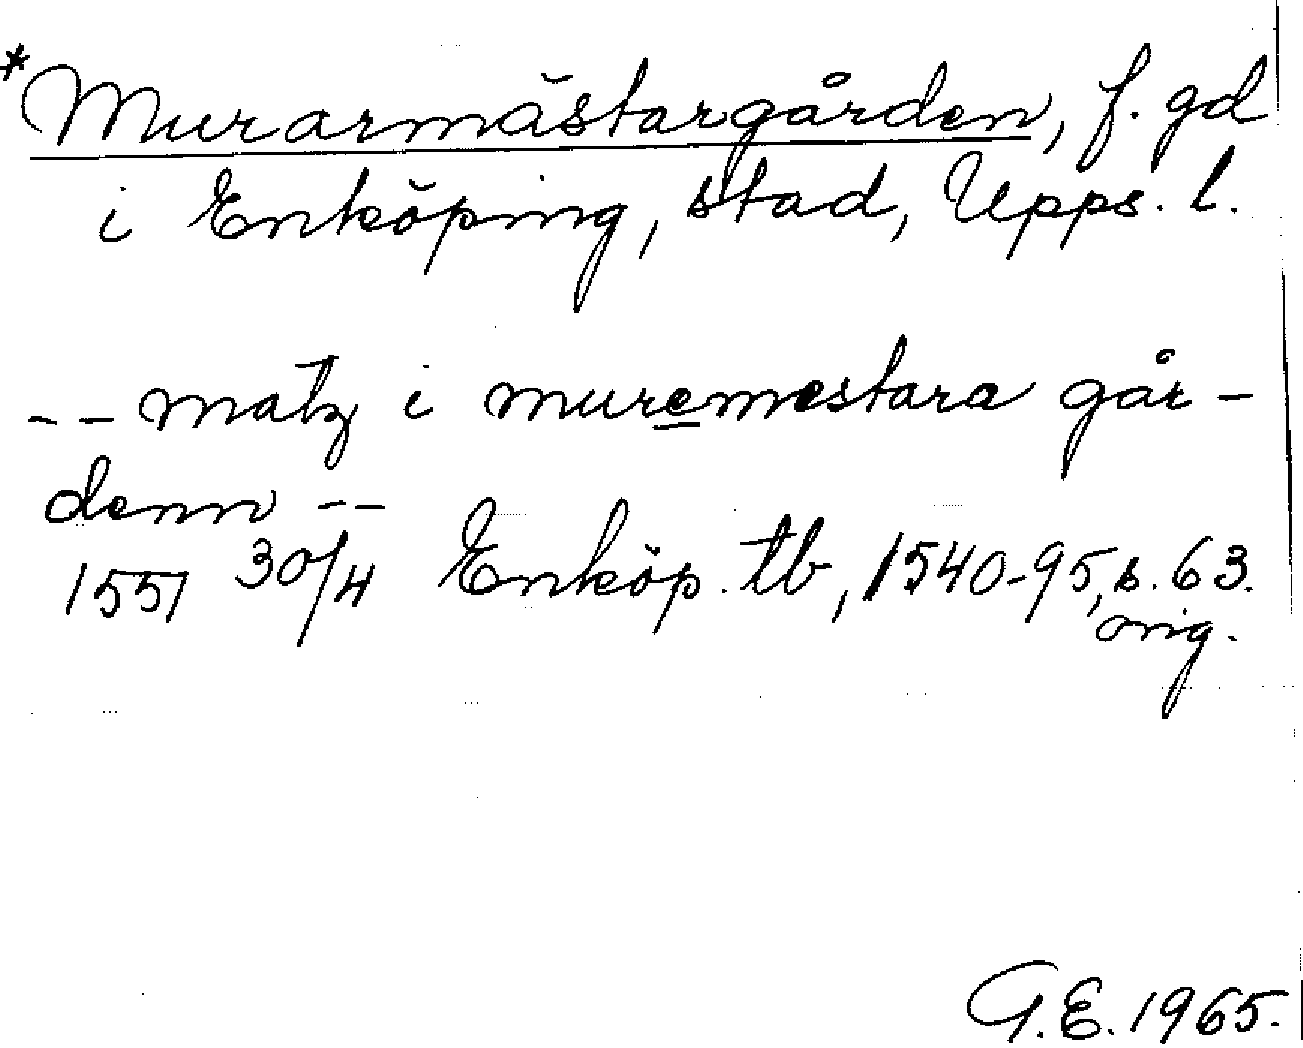 *Murarmästargården, f. gd
i Enköping, stad, Upps. l.
-- matz i muremestara går-
denn --
1551 30/4 Enköp. tb, 1540-95, s. 63.
orig.
G.E. 1965.